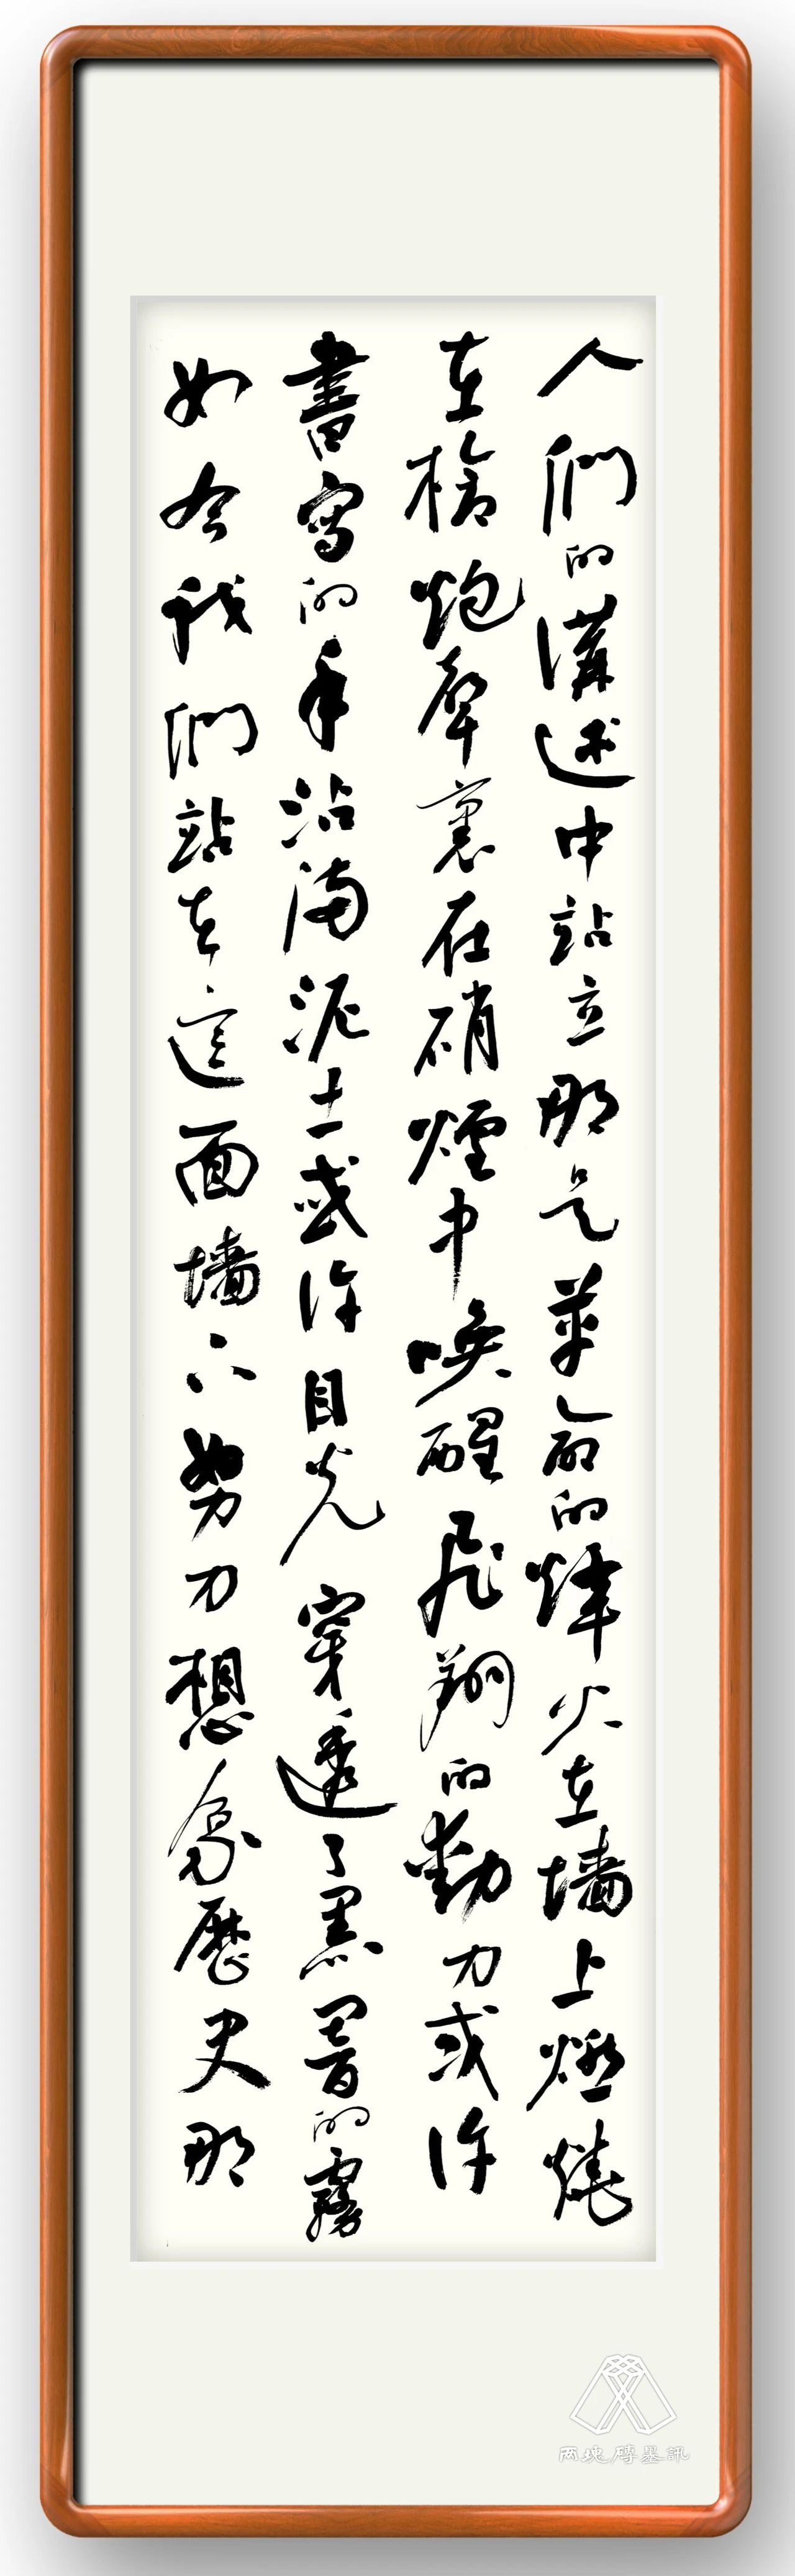 人們的講述中站立那是革命的烽火在墻上燃燒
在槍炮聲裏在硝煙中喚醒飛翔的動力或許
書寫的手沾滿泥土或許目光穿透了黑暗的霧
如今我們站在這面墻下努力想象歷史那
兩塊磚墨訊